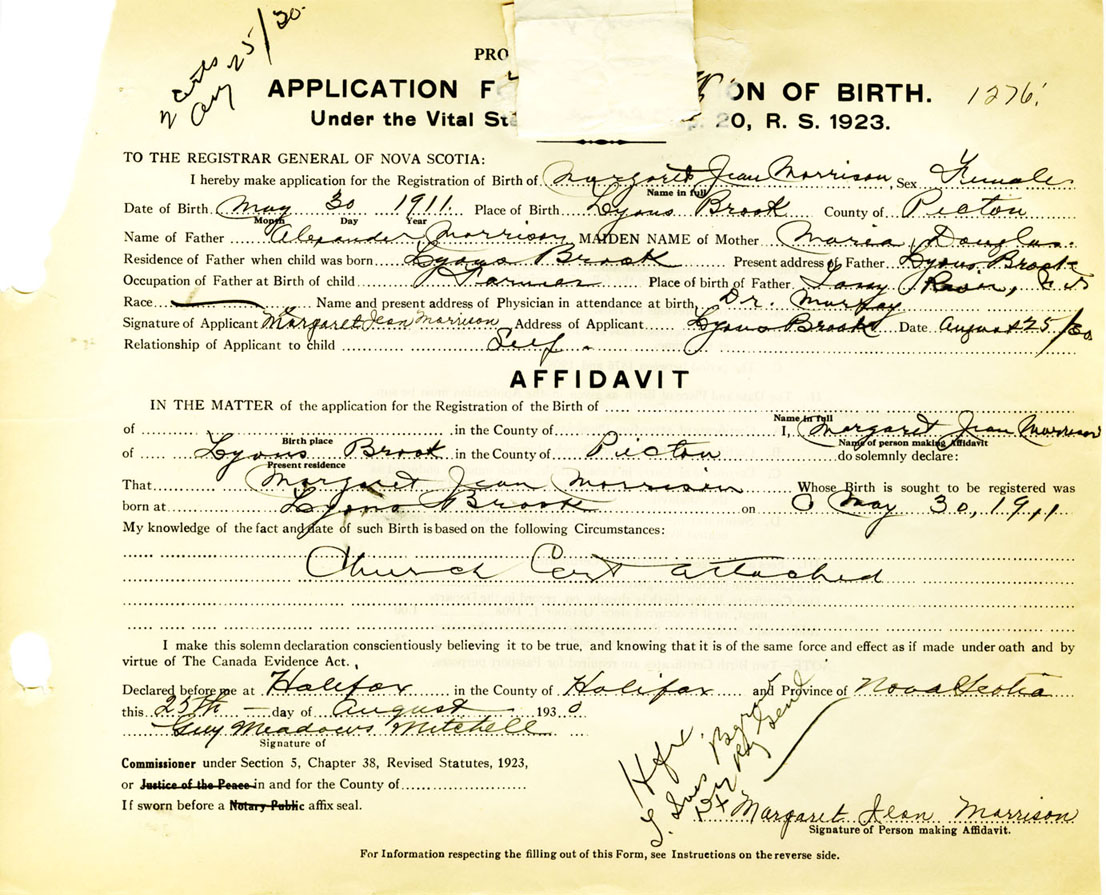 2 Certs
Aug 25/30.
PRO
APPLICATION F ON OF BIRTH. 1276
Under the Vital St . 20, R. S. 1923.
TO THE REGISTRAR GENERAL OF NOVA SCOTIA:
I hereby make application for the Registration of Birth of Margaret Jean Morrison, Sex Female
Name in full
Date of Birth May 30 1911. Place of Birth Lyons Brook County of Pictou
Month Day Year
Name of Father Alexander Morrison MAIDEN NAME of Mother Maria Douglas.
Residence of Father when child was born Lyons Brook Present address of Father Lyons Brook
Occupation of Father at Birth of child Farmer Place of birth of Father
Race Name and present address of Physician in attendance at birth, Dr. Murray
Signature of Applicant Margaret Jean Morrison Address of Applicant Lyons Brook Date August 25/30
Relationship of Applicant to child Self.
AFFIDAVIT
IN THE MATTER of the application for the Registration of the Birth of
Name in full
of in the County of I, Margaret Jean Morrison
Birth place Name of person making Affidavit
of Lyons Brook in the County of Pictou do solemnly declare:
Present residence
That Margaret Jean Morrison Whose Birth is sought to be registered was
born at Lyons Brook on May 30, 1911
My knowledge of the fact and date of such Birth is based on the following Circumstances:
Church Cert attached
I make this solemn declaration conscientiously believing it to be true, and knowing that it is of the same force and effect as if made under oath and by
virtue of The Canada Evidence Act.
Declared before me at Halifax in the County of Halifax and Province of Nova Scotia
this 25th day of August 1930
Guy Meadows Mitchell
Signature of
Commissioner under Section 5, Chapter 38, Revised Statutes, 1923,
or Justice of the Peace in and for the County of
If sworn before a Notary Public affix seal.
Hfx.
Dy Reg Genl
Margaret Jean Morrison
Signature of Person making Affidavit.
For Information respecting the filling out of this Form, see Instructions on the reverse side.